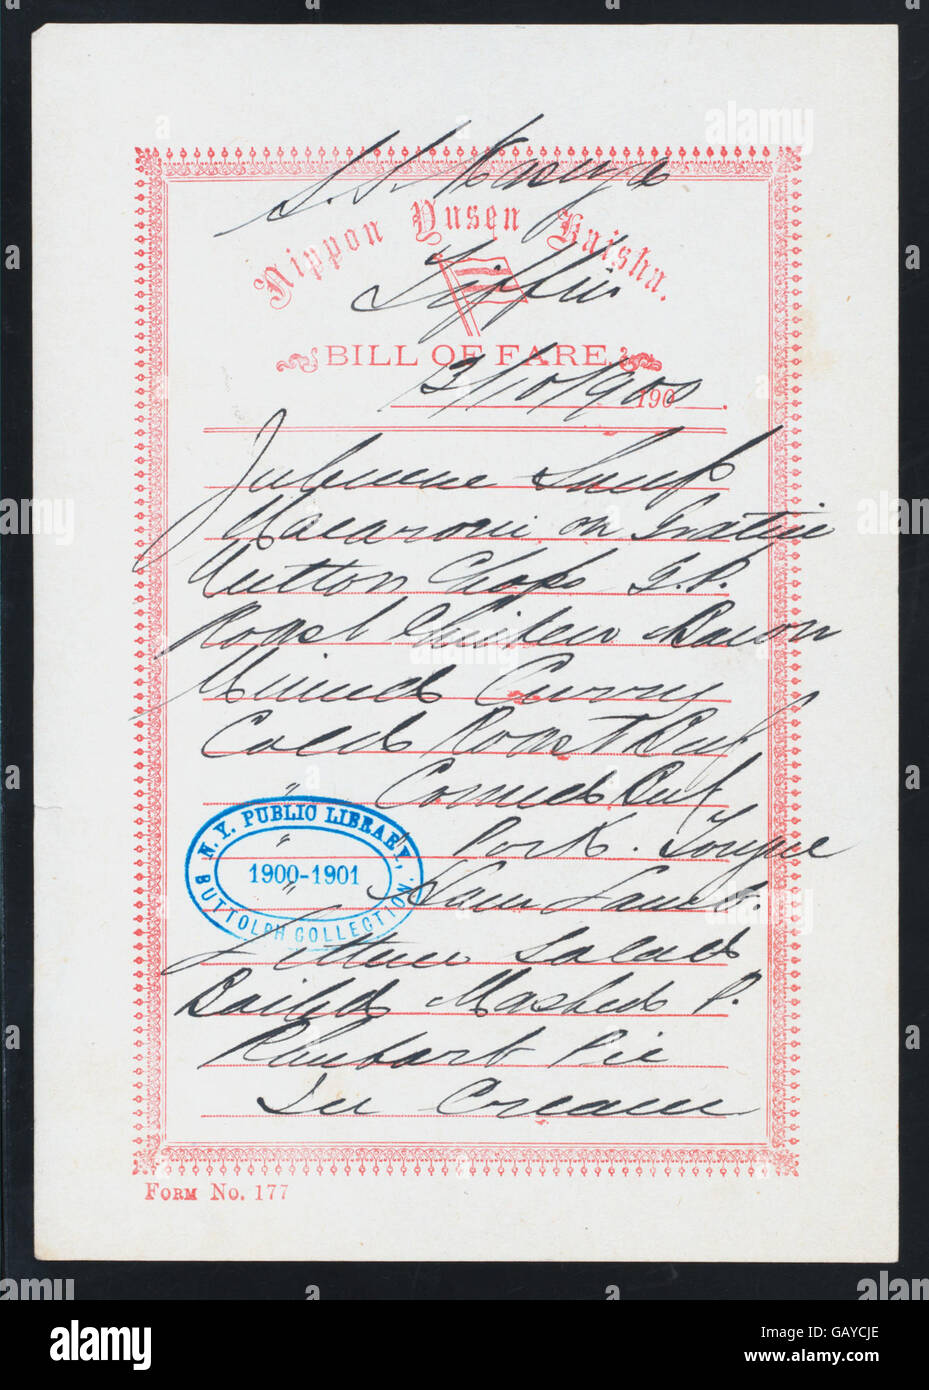 S.S. Kasuga
Nippon Yusen Kaisha.
Tiffin
BILL OF FARE
13/10/1900 190
Julienne Soup
Macaroni on Gratin
Mutton Chops G.P.
Roast Chicken Bacon
Minced Curry
Cold Roast Beef
" Corned Beef
" Pork. Tongue
" Ham Lamb.
Lettuce Salad
Boiled Mashed P.
Rhubarb Pie
Ice Cream
N.Y. PUBLIC LIBRARY,
1900-1901
BUTTOLPH COLLECTION.
FORM NO. 177
alamy
Image ID: GAYCJE
www.alamy.com